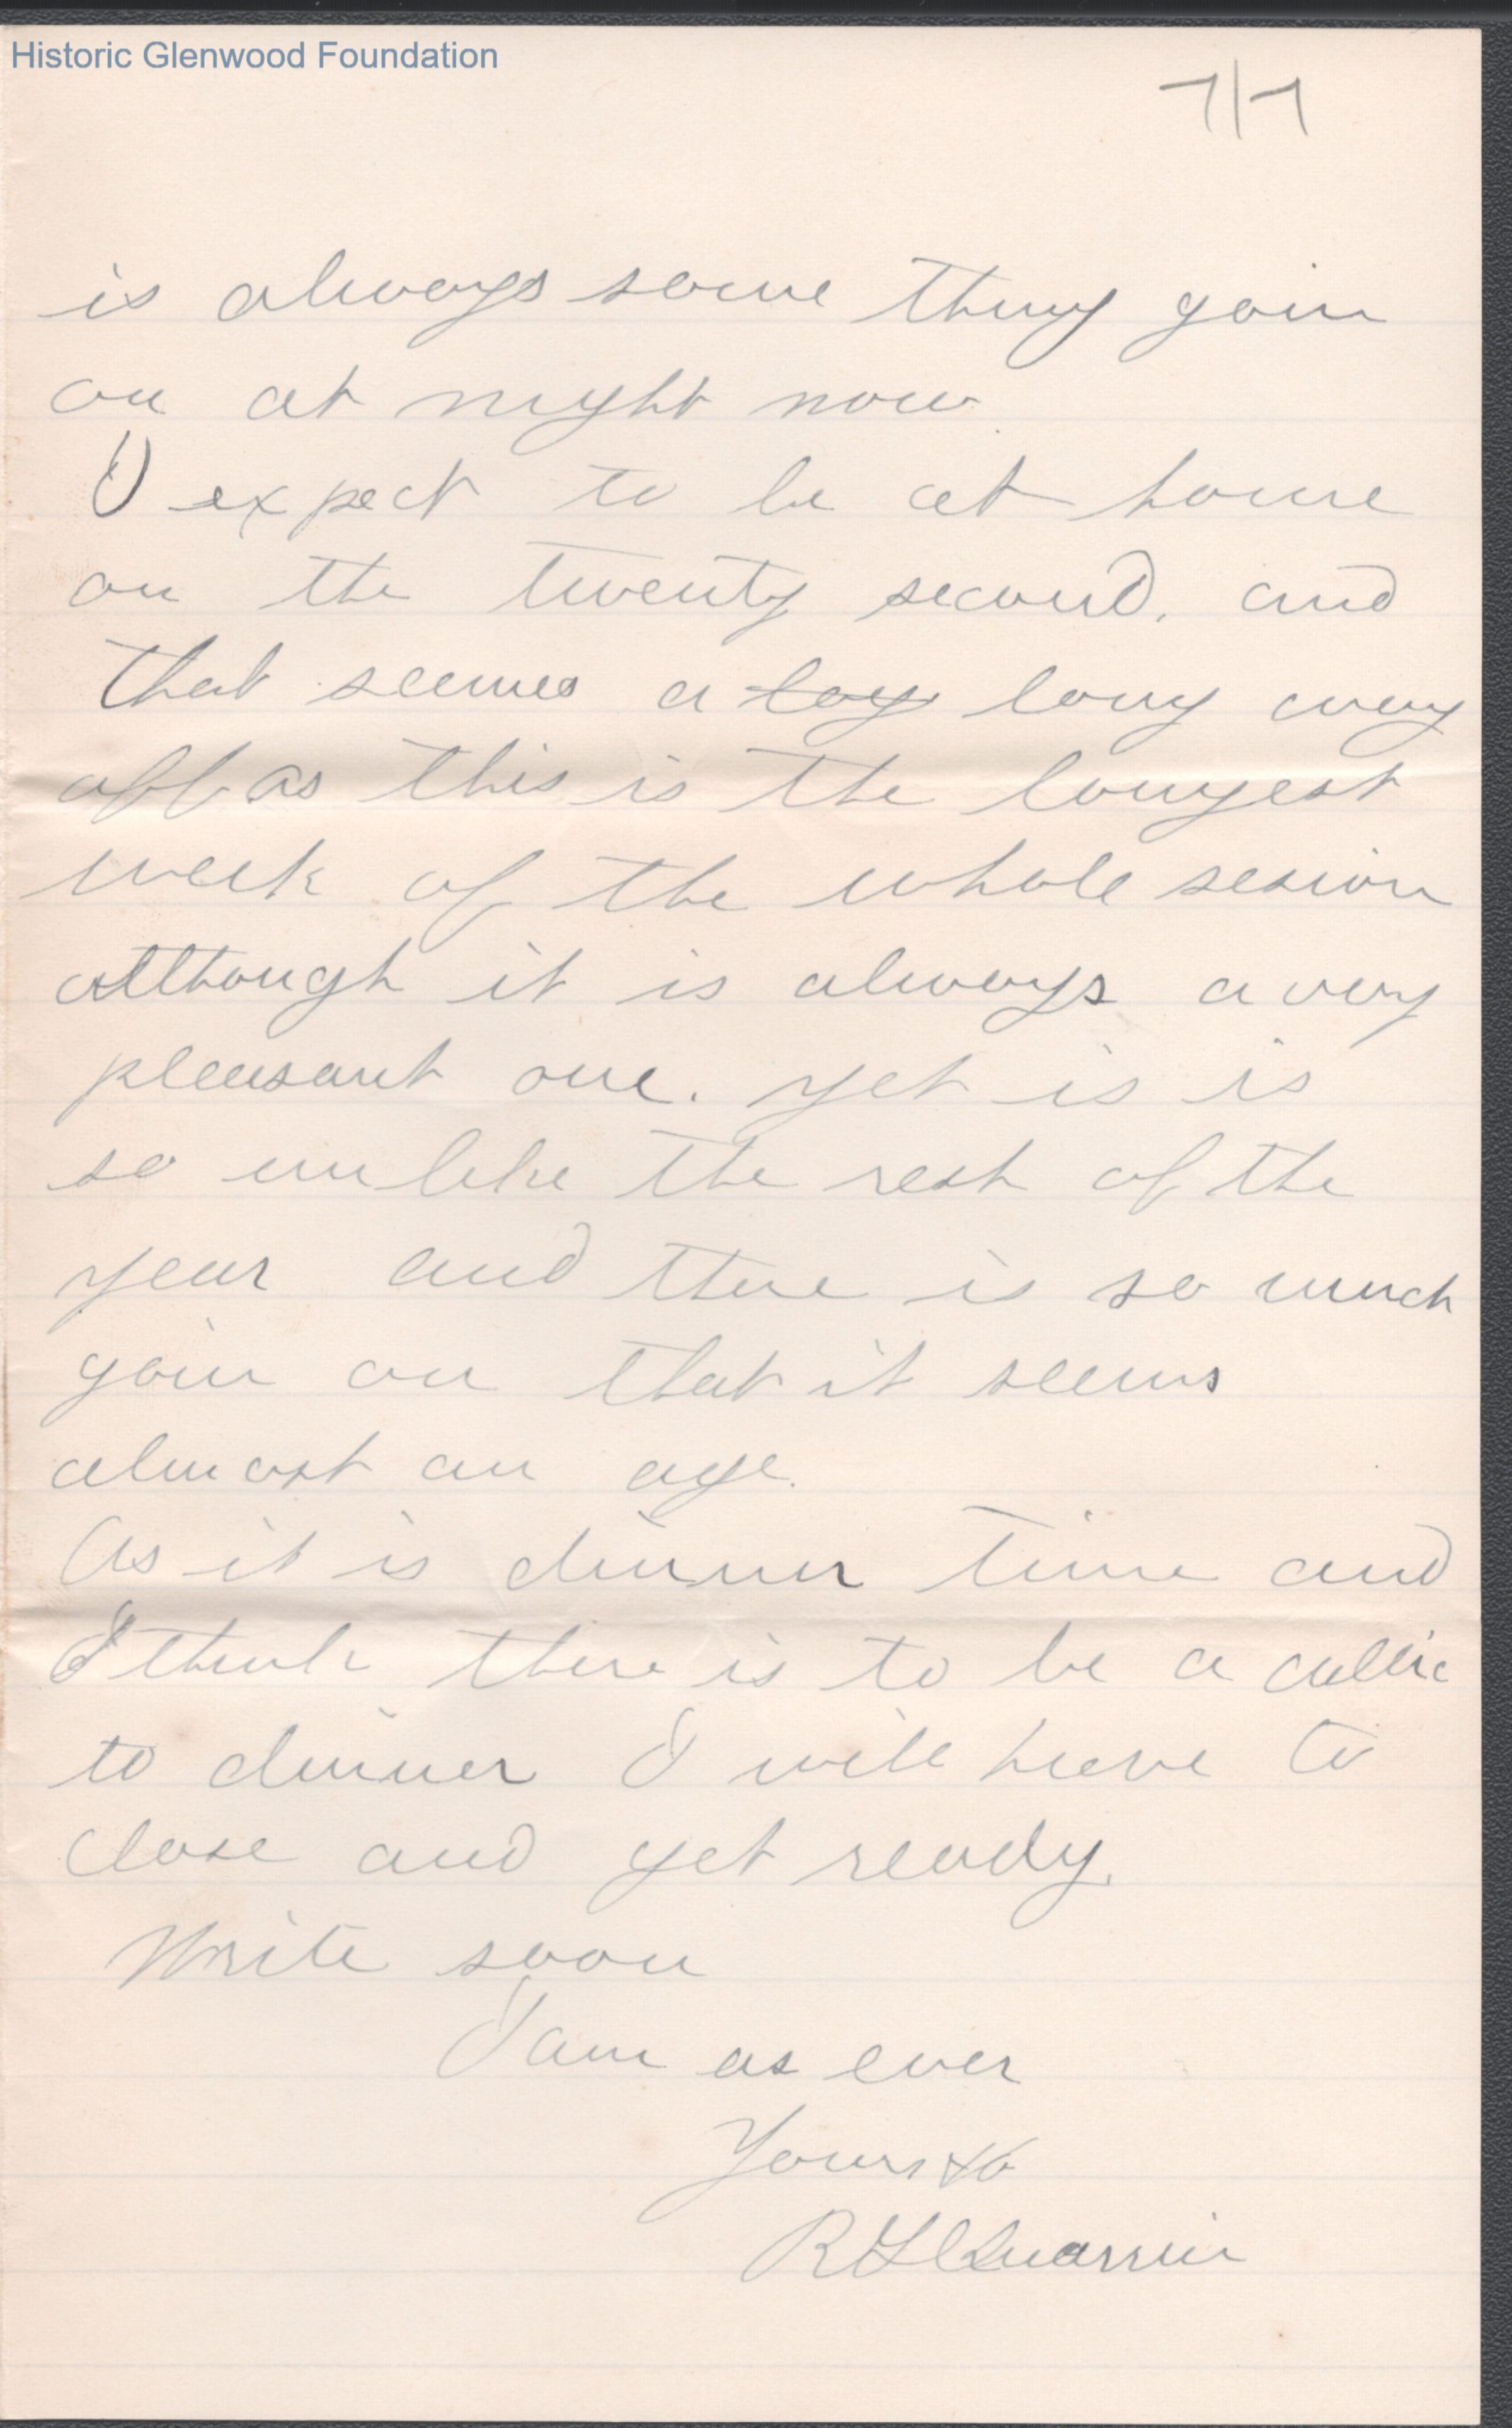 Historic Glenwood Foundation
is always some thing goin
on at night now
I expect to be at home
on the twenty second, and
that seemes a loy long way
off as this is the longest
week of the whole sesion
allthough it is always a very
pleasant one. yet is is
so unlike the rest of the
year and there is so much
goin on that it seems
almost an age.
As it is dinner time and
I think there is to be a
to dinner I will have to
close and get ready.
Write soon
I am as ever
Yours &c
R L Quarrier